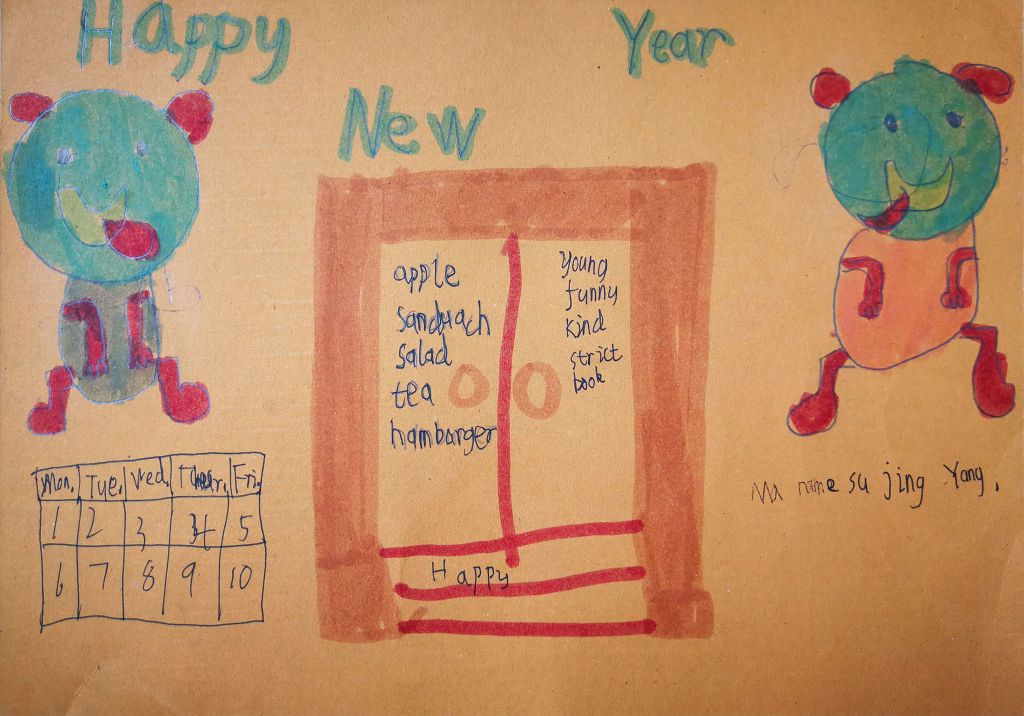 Happy
Year
New
apple
sandwach
salad
tea
hambarger
Young
funny
kind
strict
book
Mon. Tue. Wed. Fri.
1 2 3 4 5
6 7 8 9 10
Happy
name su jing Yang.